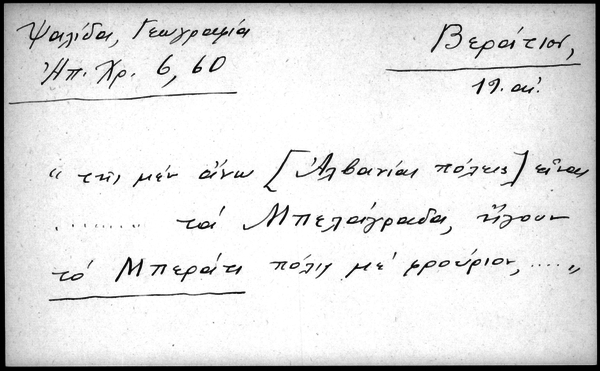 Ψαλίδα, Γεωγραφία
Ἠπ. Χρ. 6, 60
Βεράτιον,
19. αἰ.
“ τῆς μέν ἄνω [Ἀλβανίας πόλεις] εἶναι
......... τά Μπελάγραδα, ἤγουν
τό Μπεράτι πόλις μέ φρούριον, ..... „